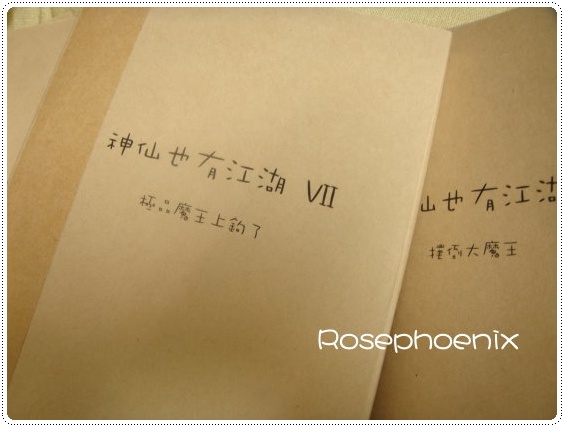 神仙也有江湖 VII
極品魔王上鉤了
仙也有江湖
撲倒大魔王
Rosephoenix